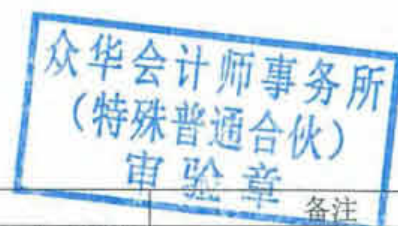 众华会计师事务所
（特殊普通合伙）
审验章
备注